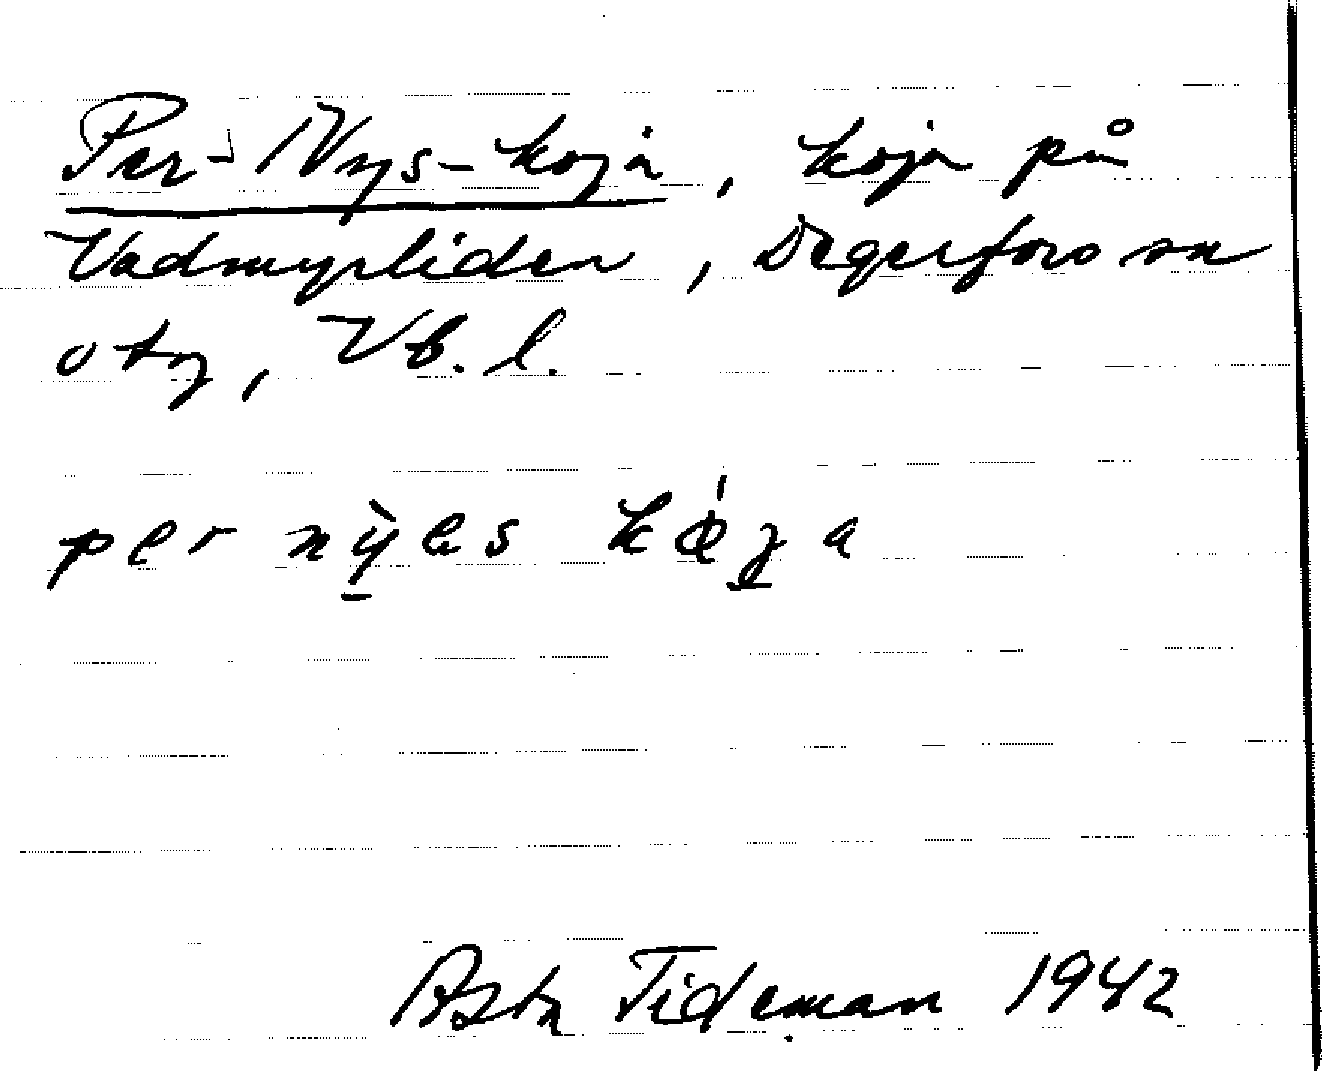 Per-Nys-koja, koja på
Vadmyrliden, Degerfors sn
o tg, Vb. l.
per nỳes
Asta Tideman 1942